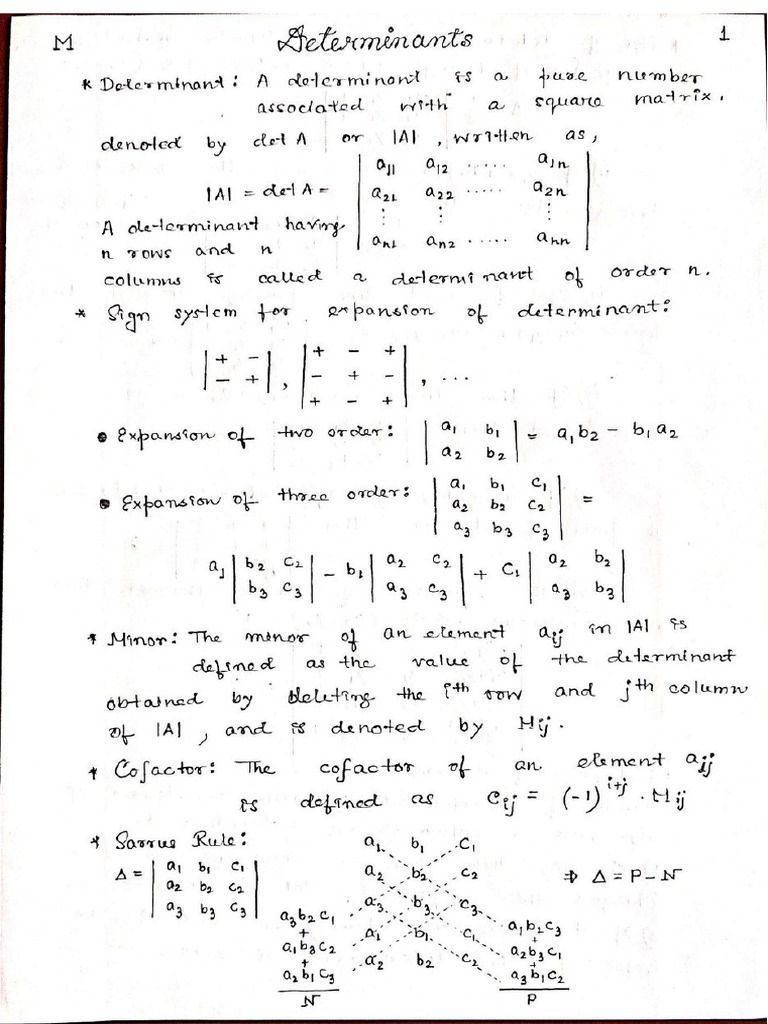 M Determinants 1
* Determinant: A determinant is a pure number
associated with a square matrix.
denoted by det A or |A|, written as,
|A| = det A = | a11 a12 ..... a1n |
| a21 a22 ..... a2n |
| ⋮ ⋮ ⋮ |
| an1 an2 ..... ann |
A determinant having
n rows and n
columns is called a determinant of order n.
* Sign system for expansion of determinant:
| + - | , | + - + | , ...
| - + | | - + - |
| + - + |
• Expansion of two order: | a1 b1 | = a1b2 - b1a2
| a2 b2 |
• Expansion of three order: | a1 b1 c1 | =
| a2 b2 c2 |
| a3 b3 c3 |
a1 | b2 c2 | - b1 | a2 c2 | + c1 | a2 b2 |
| b3 c3 | | a3 c3 | | a3 b3 |
* Minor: The minor of an element aij in |A| is
defined as the value of the determinant
obtained by deleting the ith row and jth column
of |A|, and is denoted by Mij.
* Cofactor: The cofactor of an element aij
is defined as Cij = (-1)^i+j . Mij
* Sarrus Rule:
Δ = | a1 b1 c1 |
| a2 b2 c2 |
| a3 b3 c3 |
a1 b1 c1
a2 b2 c2 ⇒ Δ = P - N
a3 b3 c3
a1 b1 c1
a2 b2 c2
a3b2c1
+
a1b3c2
+
a2b1c3
N
a1b2c3
+
a2b3c1
+
a3b1c2
P